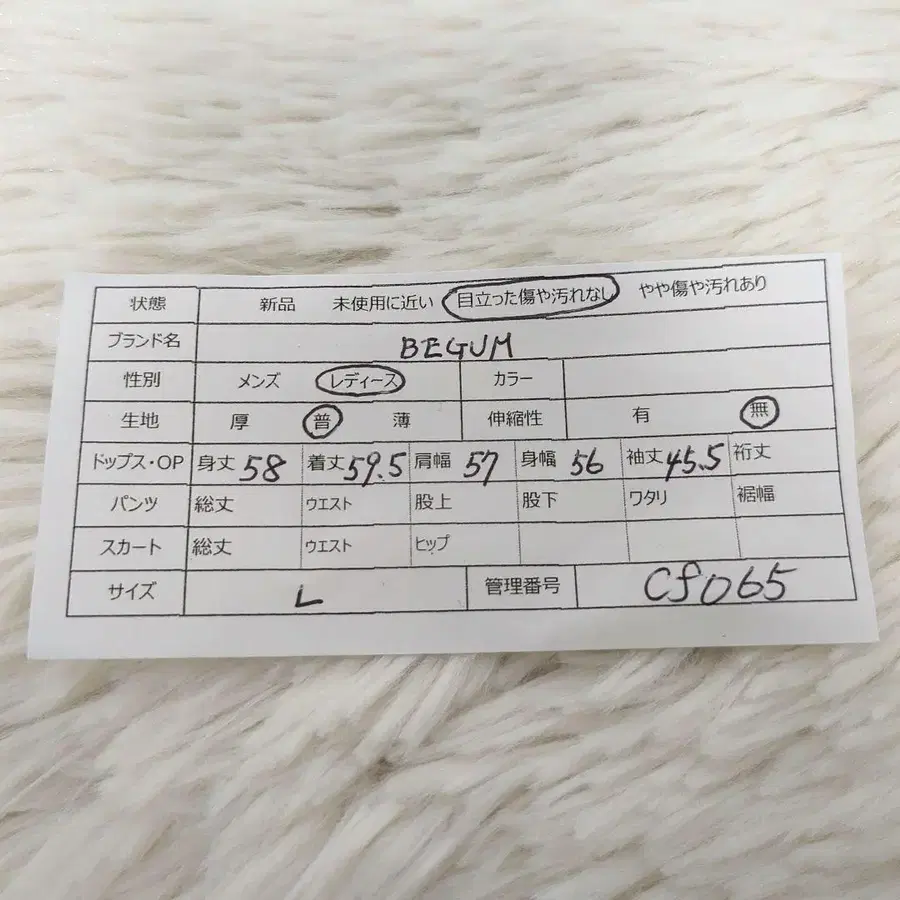 状態 新品 未使用に近い 目立った傷や汚れなし やや傷や汚れあり
ブランド名 BEGUM
性別 メンズ レディース カラー
生地 厚 普 薄 伸縮性 有 無
トップス・OP 身丈 58 着丈 59.5 肩幅 57 身幅 56 袖丈 45.5 裄丈
パンツ 総丈 ウエスト 股上 股下 ワタリ 裾幅
スカート 総丈 ウエスト ヒップ
サイズ L 管理番号 Cf065